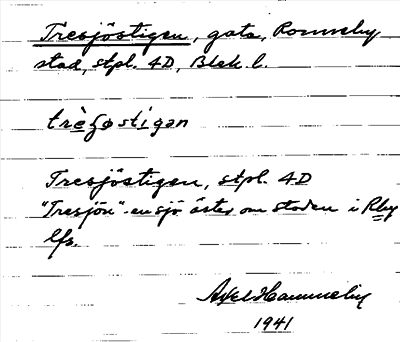 Tresjöstigen, gata, Ronneby
stad, stpl. 4D, Blek. l.
trèʃøstigan
Tresjöstigen, stpl. 4D
"Tresjön" en sjö öster om staden i Rby
lfs.
Axel Hammeby
1941